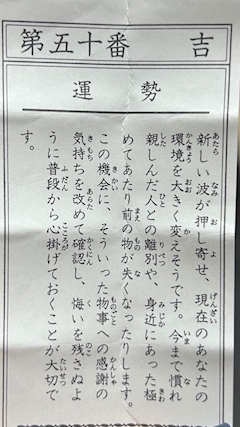 第五十番 吉
運勢
新しい波が押し寄せ、現在のあなたの
環境を大きく変えそうです。今まで慣れ
親しんだ人との離別や、身近にあった極
めてあたり前の物が失くなったりします。
この機会に、そういった物事への感謝の
気持ちを改めて確認し、悔いを残さぬよ
うに普段から心掛けておくことが大切で
す。